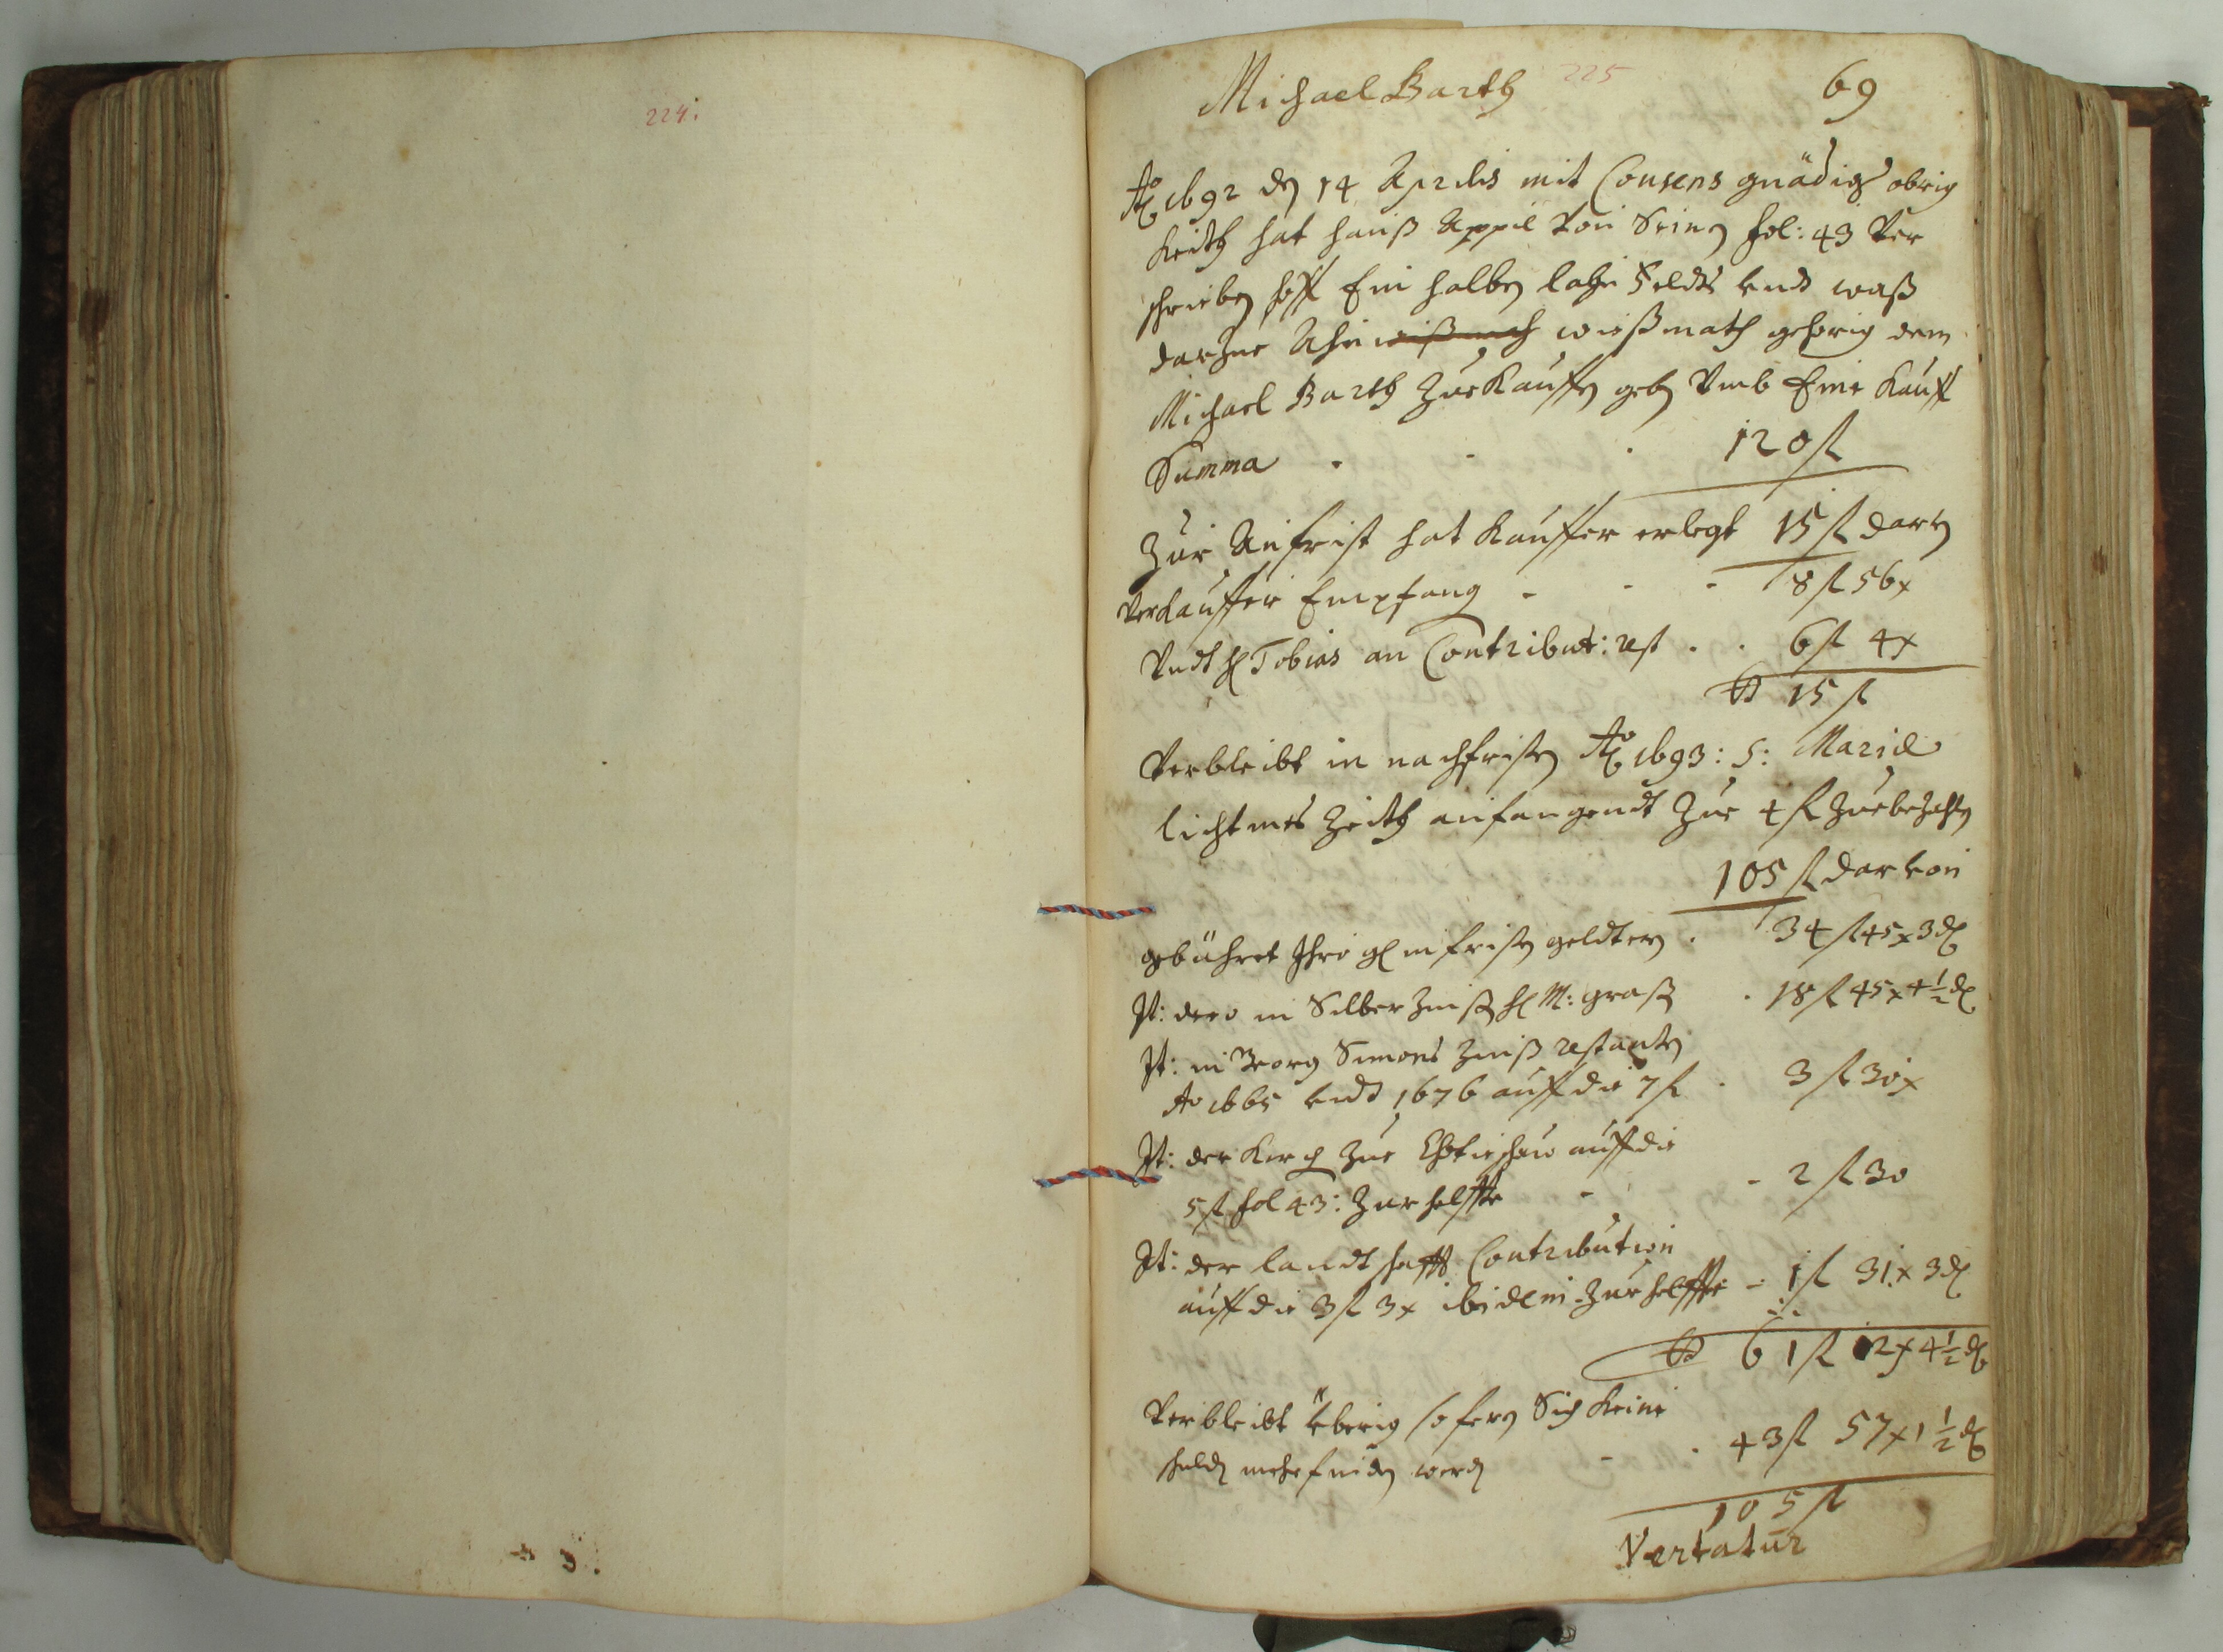 224.
Michael Barth 225 69
Ao 1692 den 14 Aprilis mit Consens gnädiger obrig
Keith hat hanß Appil von Seinen fol: 43 Ver
schrieben hoff Ein halben lahn Feldts vndt waß
darzue Ahn wißmath wießmath gehörig dem
Michael Barth Zue Kauffen geben Vmb Eine Kauff
Summa . . . 120 fl
Zur Anfrist hat Kauffer erlegt 15 fl darvon
Verkauffer Empfangen - - - 8 fl 56 x
Vndt H Tobias an Contribut: rest . . 6 fl 4 x
15 fl
Verbleibt in nachfristen Ao 1693: S: Mariae
lichtmes Zeith anfangendt Zue 4 fl Zue bezahlen
105 fl darvon
gebühret Ihro gl in fristen geldtern . 34 fl 45 x 3 d
It: dero in Silber Zinß H M: graß . 18 fl 45 x 4 1/2 d
It: in Georg Simons Zinß restanten
Ao 1665 vndt 1676 auff die 7 fl . 3 fl 30 x
It: der Kirch Zue auff die
5 fl fol 43: Zur helffte - - 2 fl 30
It: der landtschafft Contribution
auff die 3 fl 3 x ibidem Zur helffte - 1 fl 31 x 3 d
61 fl 2 x 4 1/2 d
Verbleibt überig so fern Sich Keine
schulden mehr finden werden - . 43 fl 57 x 1 1/2 d
105 fl
Vertatur